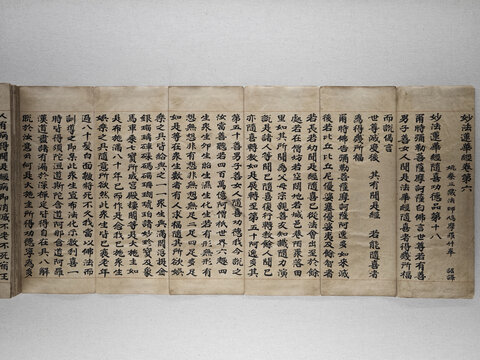 妙法蓮華經卷第六
姚秦三藏法師鳩摩羅什奉 詔譯
妙法蓮華經隨喜功德品第十八
尒時弥勒菩薩摩訶薩白佛言世尊若有善
男子善女人聞是法華經隨喜者得幾所福
而說偈言
世尊滅度後 其有聞是經 若能隨喜者
為得幾所福
尒時佛告弥勒菩薩摩訶薩阿逸多如来滅
後若比丘比丘尼優婆塞優婆夷及餘智者
若長若幼聞是經隨喜已從法會出至於餘
處若在僧坊若空閑地若城邑巷陌聚落田
里如其所聞為父母宗親善友知識隨力演
說是諸人等聞已隨喜復行轉教餘人聞已
亦隨喜轉教如是展轉至第五十阿逸多其
第五十善男子善女人隨喜功德我今說之
汝當善聽若四百萬億阿僧祇世界六趣四
生衆生卵生胎生濕生化生若有形無形有
想無想非有想非無想無足二足四足多足
如是等在衆生數者有人求福隨其所欲娛
樂之具皆給與之一一衆生與滿閻浮提金
銀瑠璃硨磲碼碯珊瑚琥珀諸妙珍寶及象
馬車乗七寶所成宮殿樓閣等是大施主如
是布施滿八十年已而作是念我已施衆生
娛樂之具隨意所欲然此衆生皆已衰老年
過八十髮白面皺將死不久我當以佛法而
訓導之即集此衆生宣布法化示教利喜一
時皆得須陁洹道斯陁含道阿那含道阿羅
漢道盡諸有漏於深禪定皆得自在具八解
脫於汝意云何是大施主所得功德寧為多
人有病得聞是經病即消滅不老不死宿王